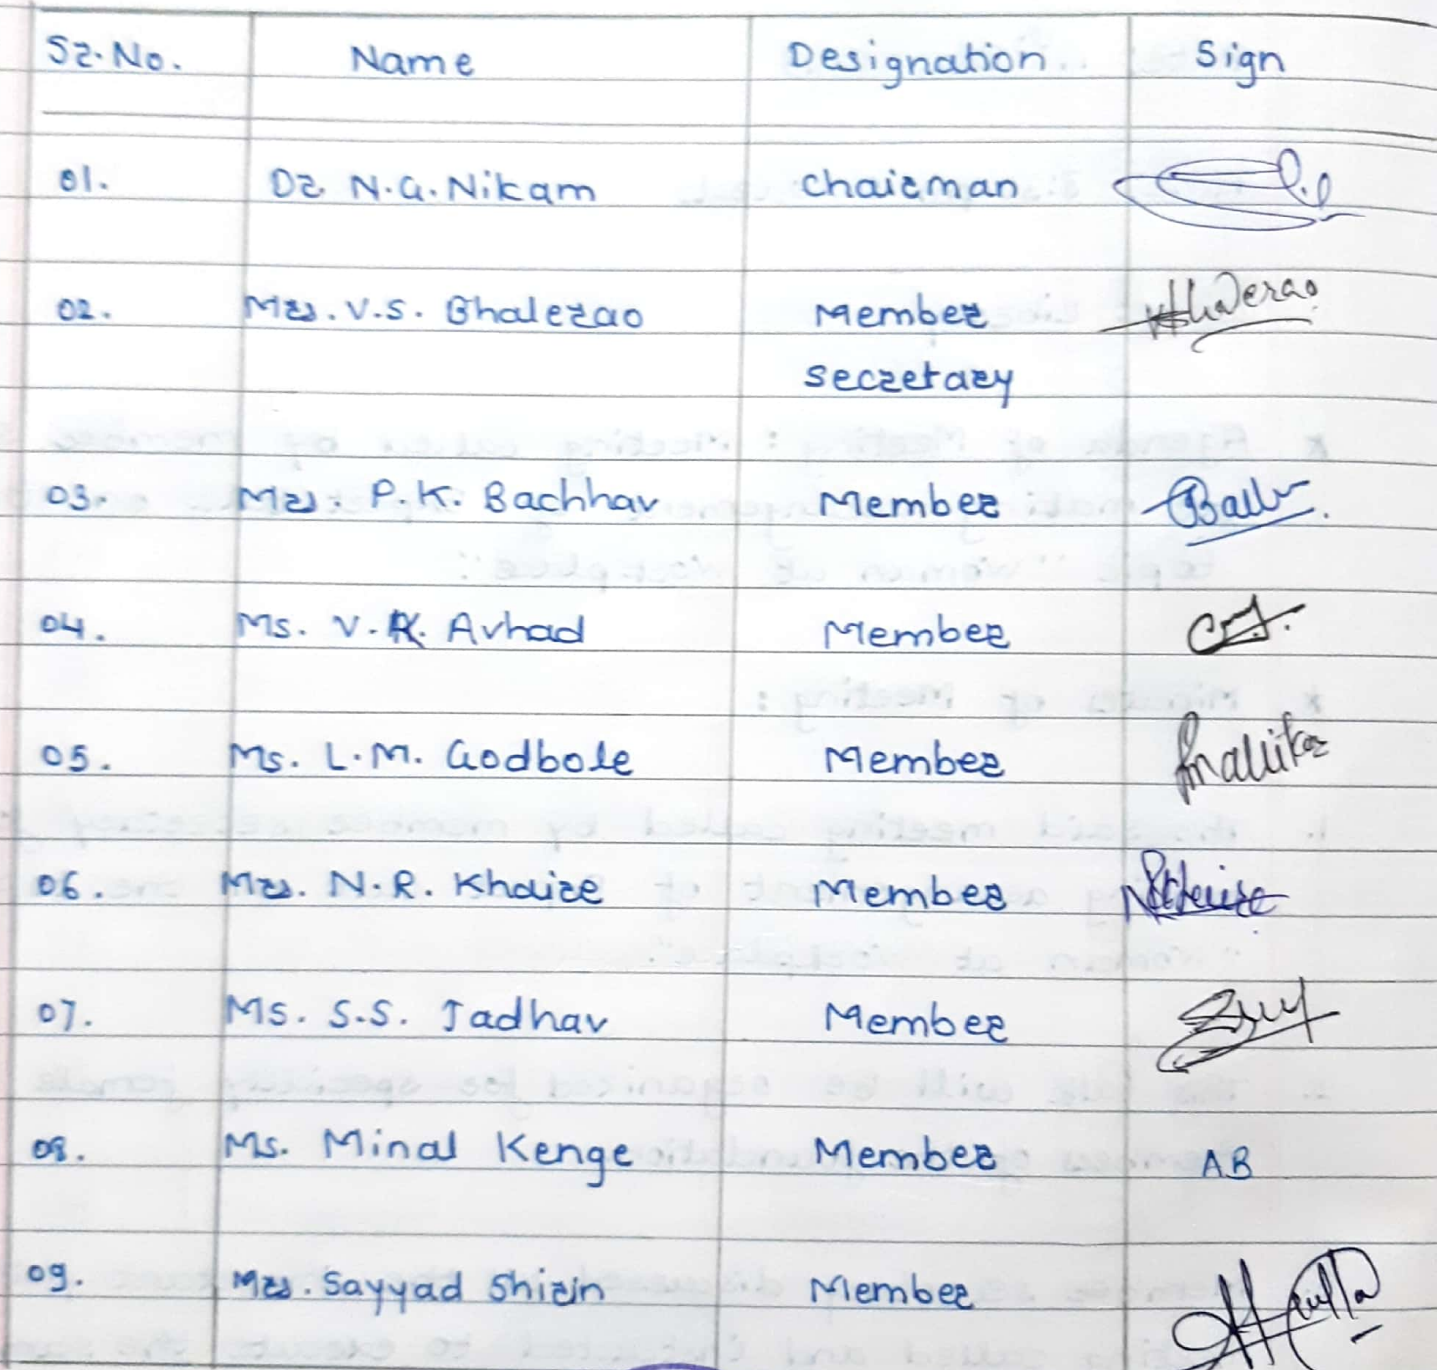 Sr. No. Name Designation Sign
01. Dr. N.G. Nikam Chairman
02. Mrs. V.S. Bhalerao Member
secretary
03. Mrs. P.K. Bachhav Member
04. Ms. V.K. Avhad Member
05. Ms. L.M. Godbole Member
06. Mrs. N.R. Khaire Member
07. Ms. S.S. Jadhav Member
08. Ms. Minal Kenge Member AB
09. Mrs. Sayyad Shirin Member